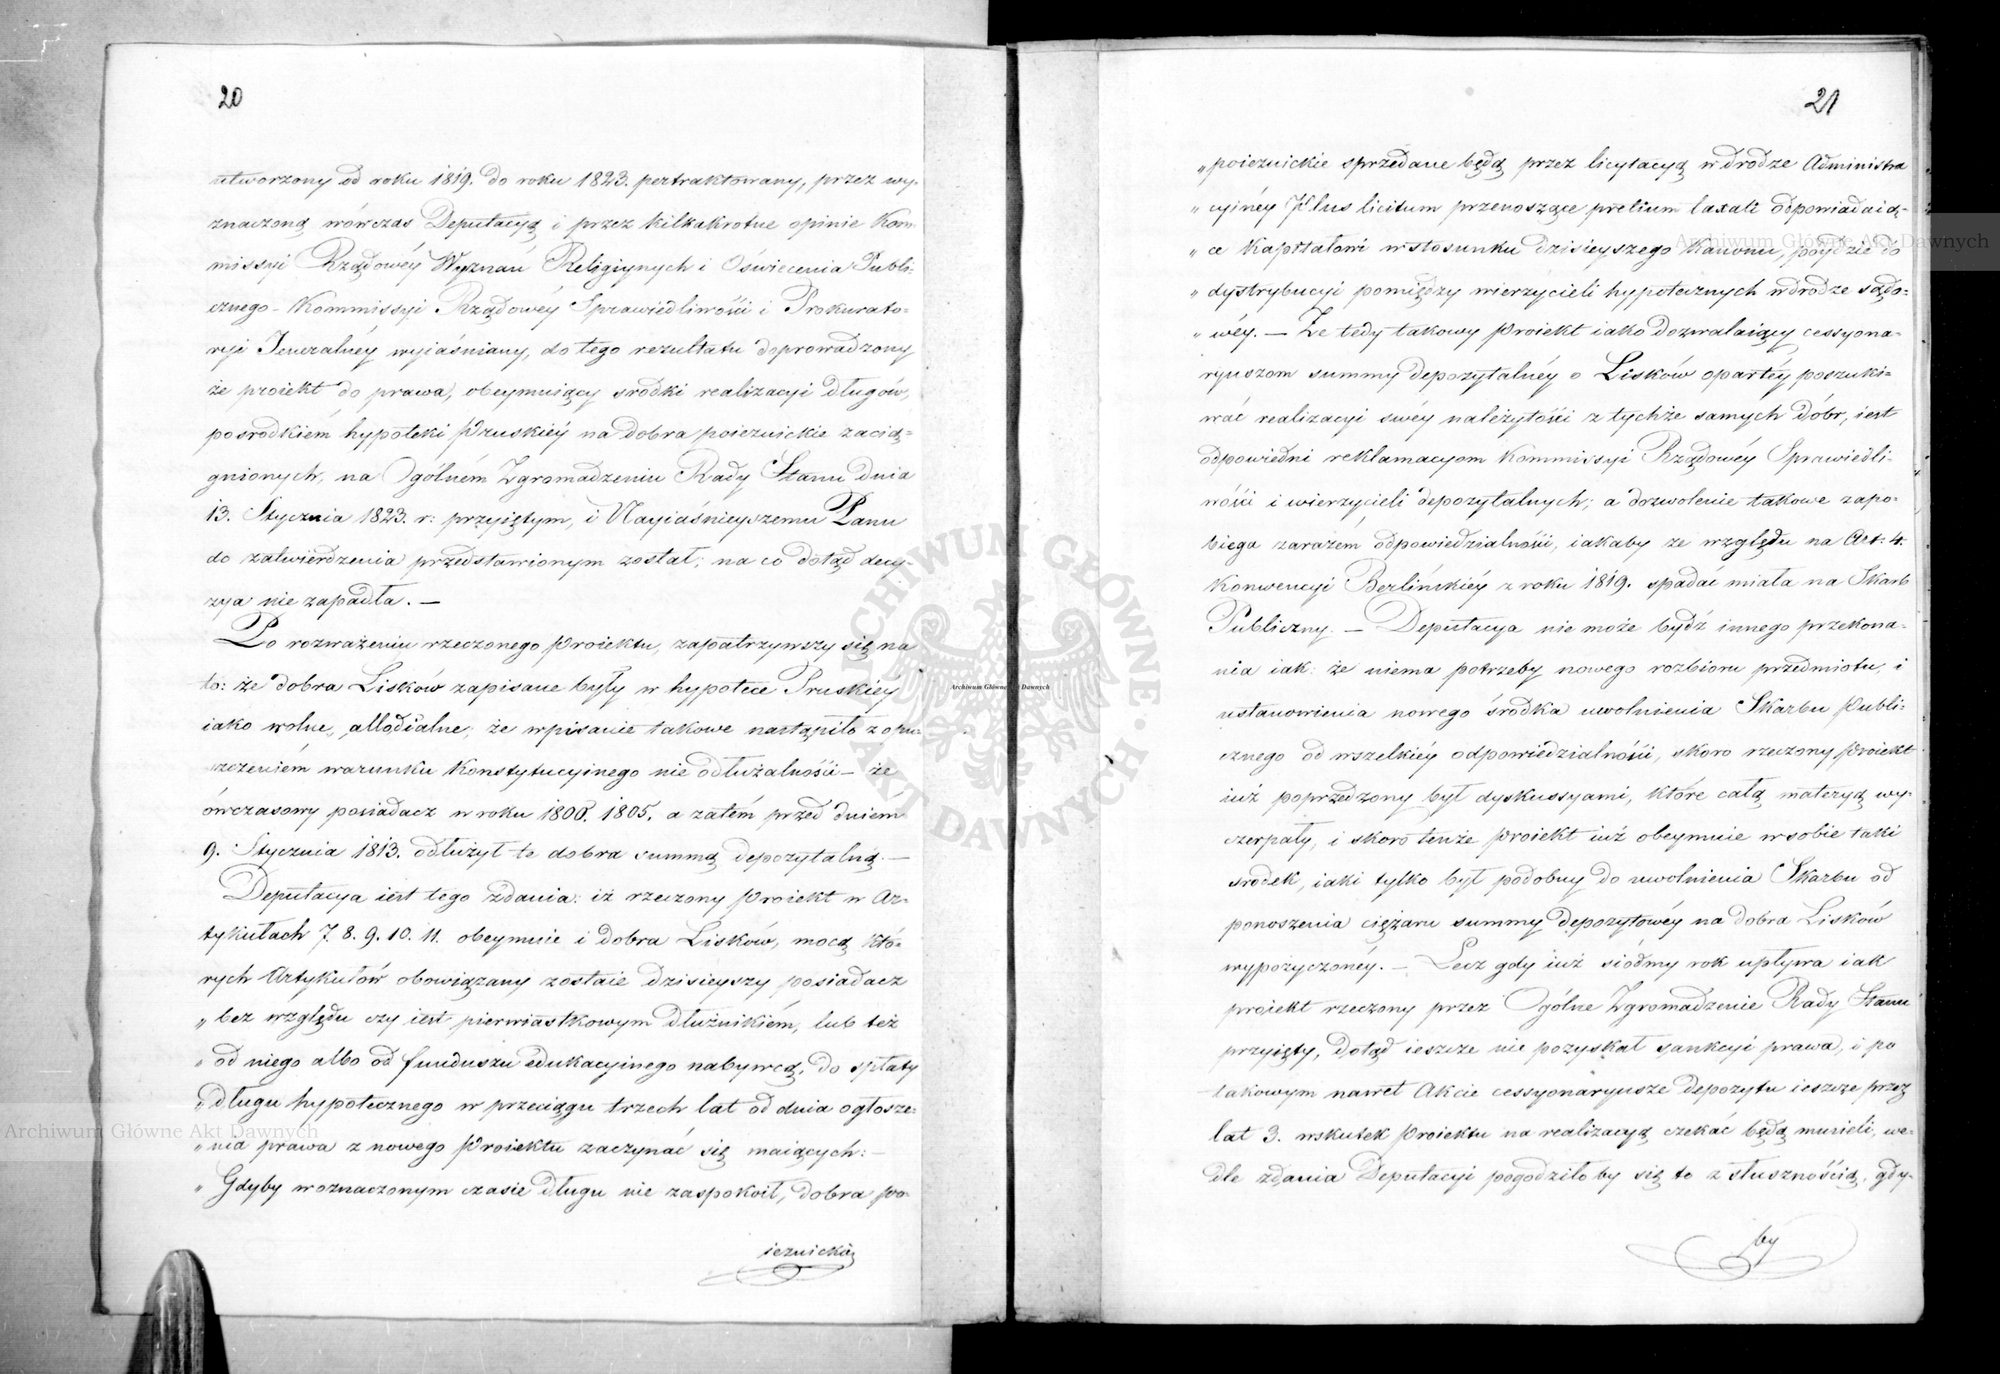 20
utworzony od roku 1819. do roku 1823. pertraktowany, przez wy-
znaczoną wówczas Deputacyą i przez kilkakrotne opinie Kom-
missyi Rządowéy Wyznań Religiynych i Oświecenia Publi-
cznego - Kommissyi Rządowéy Sprawiedliwości i Prokurato-
ryi Jeneralnéy wyiaśniany, do tego rezultatu doprowadzony
że proiekt do prawa, obeymuiący srodki realizacyi długów,
posrodkiem hypoteki Pruskiéy na dobra poieznickie zacią-
gnionych, na Ogólném Zgromadzeniu Rady Stanu dnia
13. Stycznia 1823. r: przyiętym, i Nayiaśnieyszemu Panu
do zatwierdzenia przedstawionym został; na co dotąd decy-
zya nie zapadła. —
Po rozważeniu rzeczonego Proiektu, zapatrzywszy się na
to: że dobra Lisków zapisane były w hypotece Pruskiéy
iako wolne, allodialne; że wpisanie takowe nastąpiło z opu-
szczeniem warunku Konstytucyinego nie odłużalności — że
ówczasowy posiadacz w roku 1800. 1805. a zatém przed dniem
9. Stycznia 1813. odłużył te dobra summą depozytalną. —
Deputacya iest tego zdania: iż rzeczony Proiekt w Ar-
tykułach 7. 8. 9. 10. 11. obeymuie i dobra Lisków, mocą któ-
rych Artykułów obowiązany zostaie dzisieyszy posiadacz
„ bez względu czy iest pierwiastkowym dłużnikiem, lub też
„ od niego albo od funduszu edukacyinego nabywcą, do spłaty
„ długu hypotecznego w przeciągu trzech lat od dnia ogłosze-
„ nia prawa z nowego Proiektu zaczynać się maiących: —
„ Gdyby w oznaczonym czasie długu nie zaspokoił, dobra po-
ieznickie
21
„ poieznickie sprzedane będą przez licytacyą w drodze Administra
„ cyinéy Plus licitum przenoszące pretium taxati odpowiadaią-
„ ce Kapitałowi w stosunku dzisieyszego Kanonu, poydzie do
„ dystrybucyi pomiędzy wierzycieli hypotecznych w drodze sądo-
„ wéy. — Że tedy takowy Proiekt iako dozwalaiący cessyona-
ryuszom summy depozytalnéy o Lisków opartéy poszuki-
wać realizacyi swéy należytości z tychże samych dóbr, iest
odpowiedni reklamacyom Kommissyi Rządowéy Sprawiedli-
wości i wierzycieli depozytalnych; a dozwolenie takowe zapo-
biega zarazem odpowiedzialności, iakaby ze względu na Art: 4.
Konwencyi Berlińskiéy z roku 1819. spadać miała na Skarb
Publiczny. — Deputacya nie może bydź innego przekona-
nia iak: że niema potrzeby nowego rozbioru przedmiotu, i
ustanowienia nowego środka uwolnienia Skarbu Publi-
cznego od wszelkiéy odpowiedzialności, skoro rzeczony Proiekt
iuż poprzedzony był dyskussyami, które całą materyą wy-
czerpały, i skoro tenże Proiekt iuż obeymuie w sobie taki
srodek, iaki tylko był podobny do uwolnienia Skarbu od
ponoszenia ciężaru summy depozytowéy na dobra Lisków
wypożyczonéy. — Lecz gdy iuż siódmy rok upływa iak
proiekt rzeczony przez Ogólne Zgromadzenie Rady Stanu
przyięty, dotąd ieszcze nie pozyskał sankcyi prawa, i po
takowym nawet Akcie cessyonaryusze depozytu ieszcze przez
lat 3. wskutek Proiektu na realizacyą czekać będą musieli, we-
dle zdania Deputacyi pogodziłoby się to z słusznością, gdy-
by
Archiwum Główne Akt Dawnych
Archiwum Główne Akt Dawnych
Archiwum Główne Akt Dawnych
ARCHIWUM GŁÓWNE AKT DAWNYCH